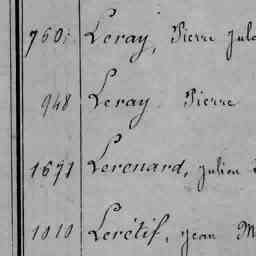 760. Leray, Pierre Jul
948 Leray Pierre
1671 Lerenard, Julien
1010 Lerétif, Jean M